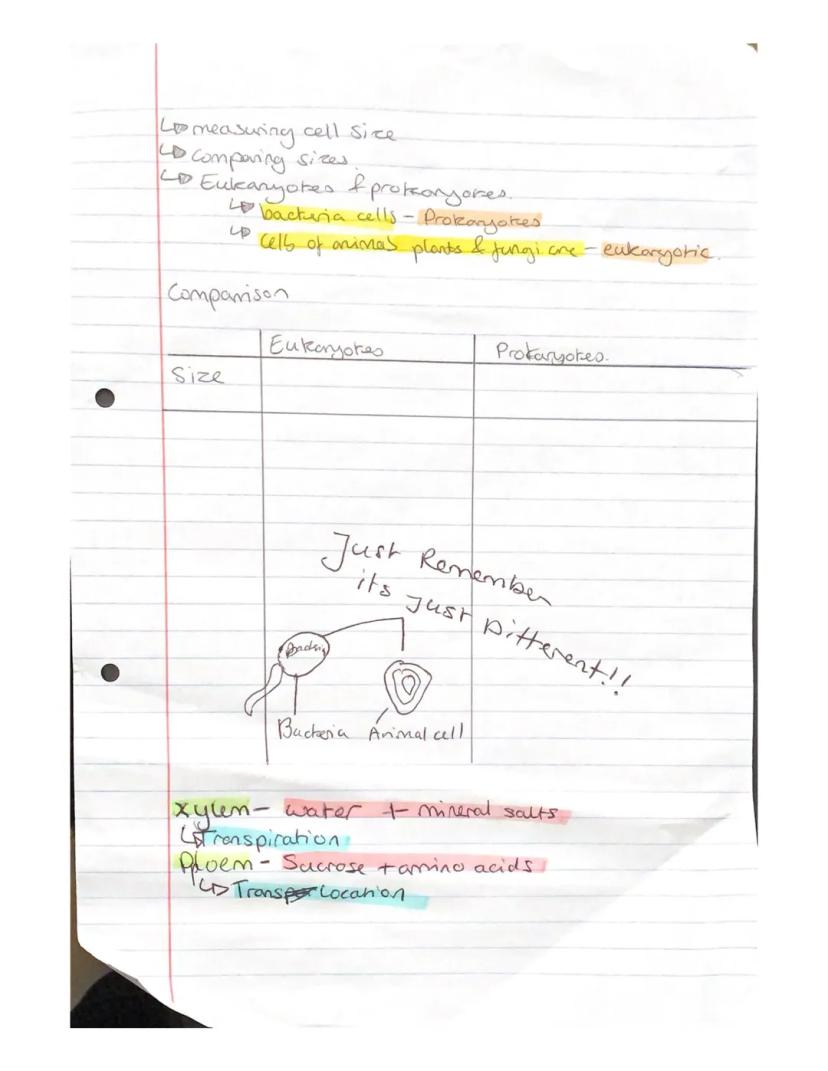 ↳ measuring cell size
↳ Comparing sizes.
↳ Eukaryotes & prokaryotes.
↳ bacteria cells - Prokaryotes
↳ cells of animals plants & fungi are - eukaryotic.
Comparison
Eukaryotes Prokaryotes.
Size
Just Remember
its Just Different!!
Bacteria Animal cell
xylem - water + mineral salts
↳ Transpiration
Phloem - Sucrose + amino acids
↳ Translocation